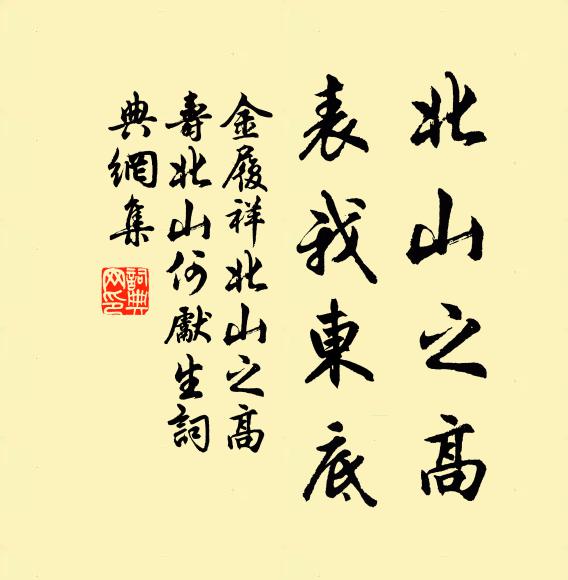 北山之高
表我東底
金履祥北山之高
壽北山何獻生詞
典網集
詞典網印